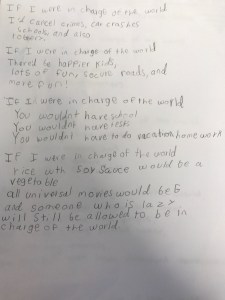 If I were in charge of the world
I'd cancel exams, car crashes
schools and also
robbers.
If I were in charge of the world
There'd be happier kids,
lots of fun, secure roads, and
more fun!
If I were in charge of the world
You wouldn't have school
You wouldnt have tests
You wouldnt have to do vacation homework
If I were in charge of the world
rice with Soy Sauce would be a
vegetable
all universal movies would be G
and someone who is lazy
will still be allowed to be in
charge of the world.